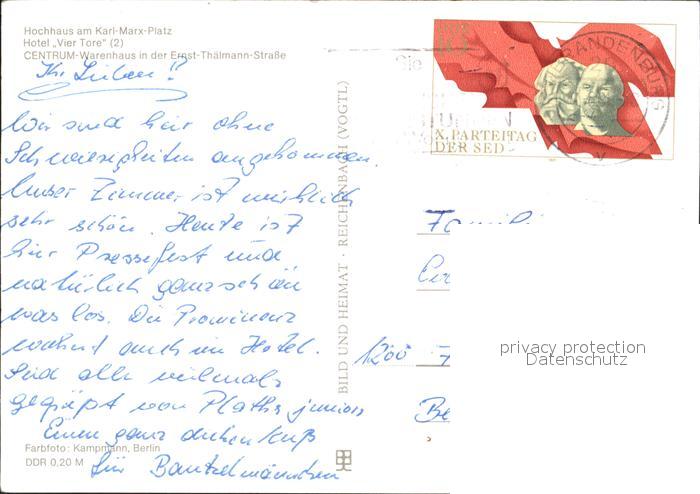 Hochhaus am Karl-Marx-Platz
Hotel „Vier Tore“ (2)
CENTRUM-Warenhaus in der Ernst-Thälmann-Straße
Ihr Lieben!!
Wir sind hier ohne
Schwierigkeiten angekommen.
Unser Zimmer ist wirklich
sehr schön. Heute ist
hier Pressefest und
natürlich ganz schön
was los. Die Prominenz
wohnt auch im Hotel.
Seid alle vielmals
gegrüßt von Plaths junior
Einen ganz dicken Kuß
für
Farbfoto: Kampmann, Berlin
DDR 0,20 M
BILD UND HEIMAT · REICHENBACH (VOGTL)
X. PARTEITAG
DER SED
BRANDENBURG
Famil
1200
Be
privacy protection
Datenschutz